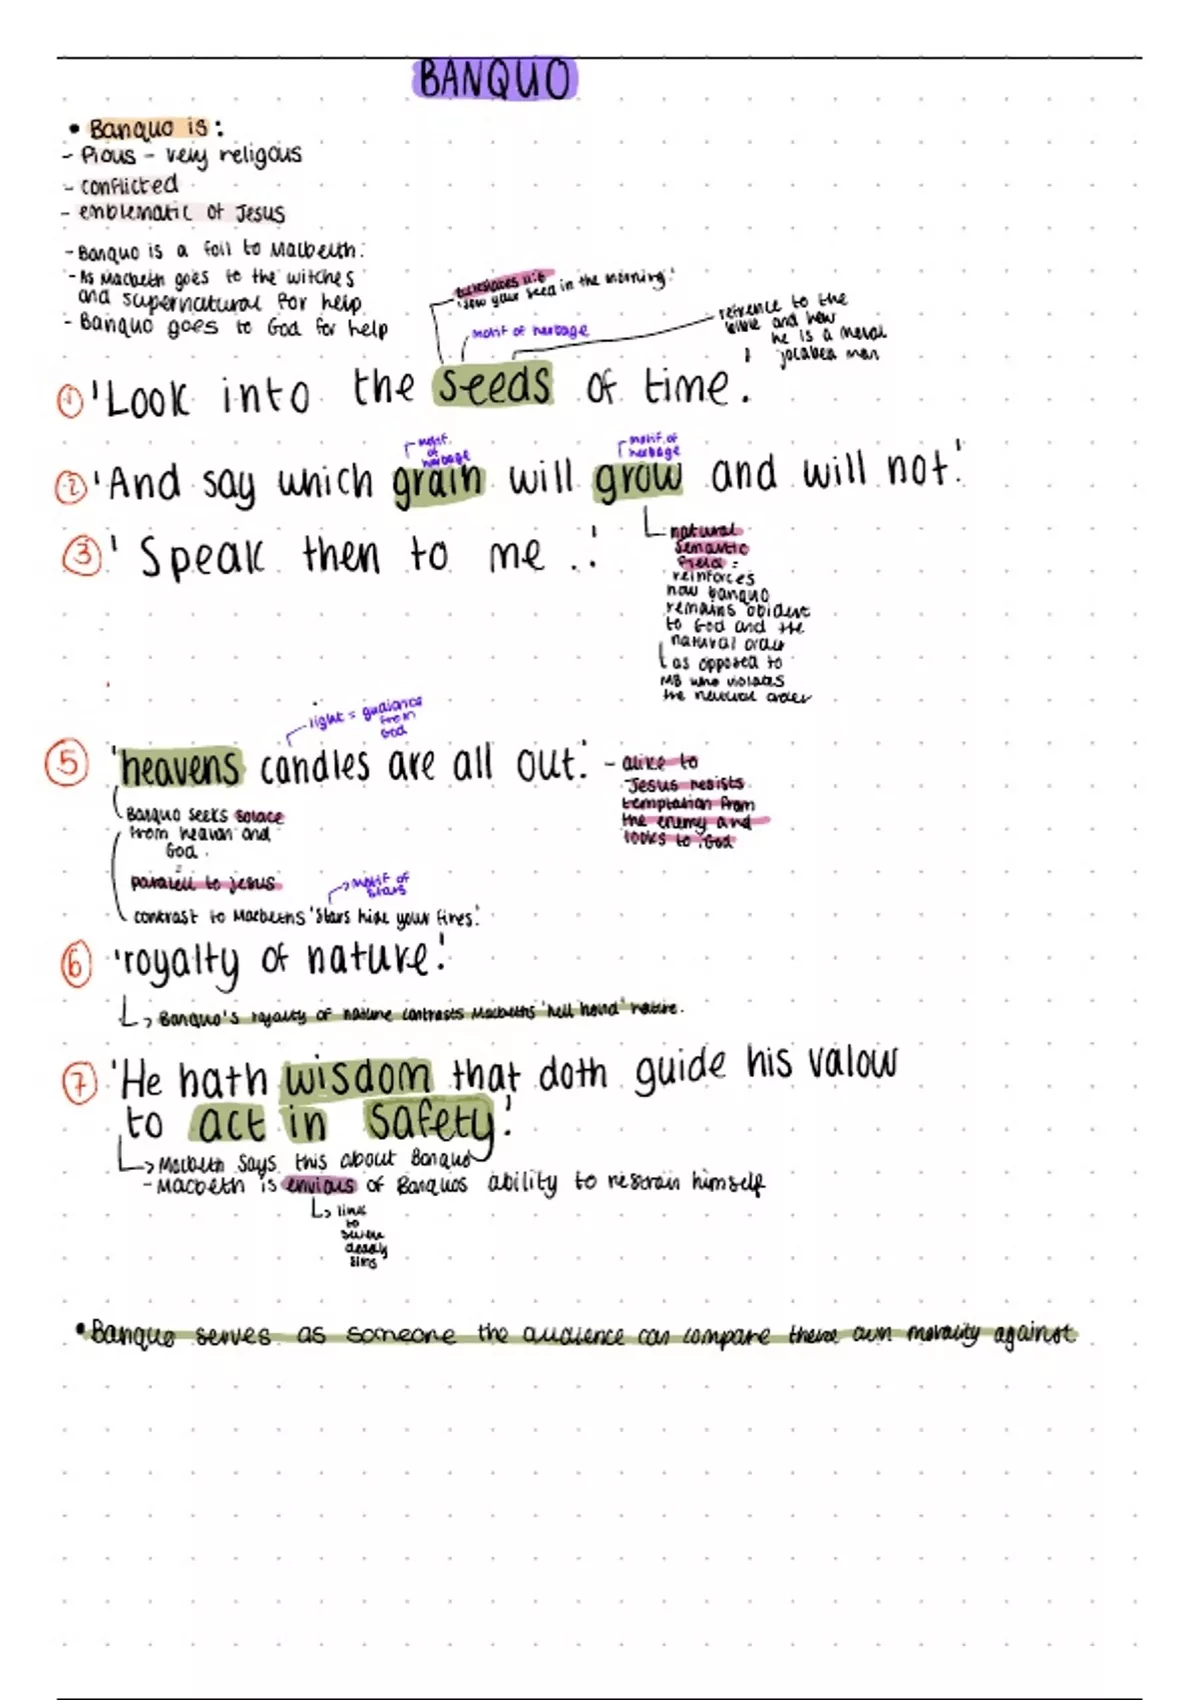 BANQUO
• Banquo is:
- Pious - very religous
- conflicted
- emblematic of Jesus
- Banquo is a foil to Macbeth.
- As Macbeth goes to the witches
and supernatural for help
- Banquo goes to God for help
'sow your seed in the morning.'
motif of herbage
refrence to the
bible and how
he is a moral
jacobean man
① 'Look into the seeds of time.'
motif
of
herbage
motif of
herbage
② 'And say which grain will grow and will not.'
③ 'Speak then to me ..'
natural
semantic
field:
reinforces
how banquo
remains obident
to God and the
natural order
as opposed to
MB who violates
the natural order
light = guidance
from
God
⑤ 'heavens candles are all out.' - alike to
Jesus resists
temptation from
the enemy and
looks to God
Banquo seeks solace
from heaven and
God.
paralell to jesus
motif of
stars
contrast to Macbeths 'stars hide your fires.'
⑥ 'royalty of nature.'
Banquo's royalty of nature contrasts Macbeths 'hell hound' nature.
⑦ 'He hath wisdom that doth guide his valour
to act in safety.'
Macbeth says this about Banquo
- Macbeth is envious of Banquos ability to restrain himself
links
to
seven
deadly
sins
• Banquo serves as someone the audience can compare there own morality against